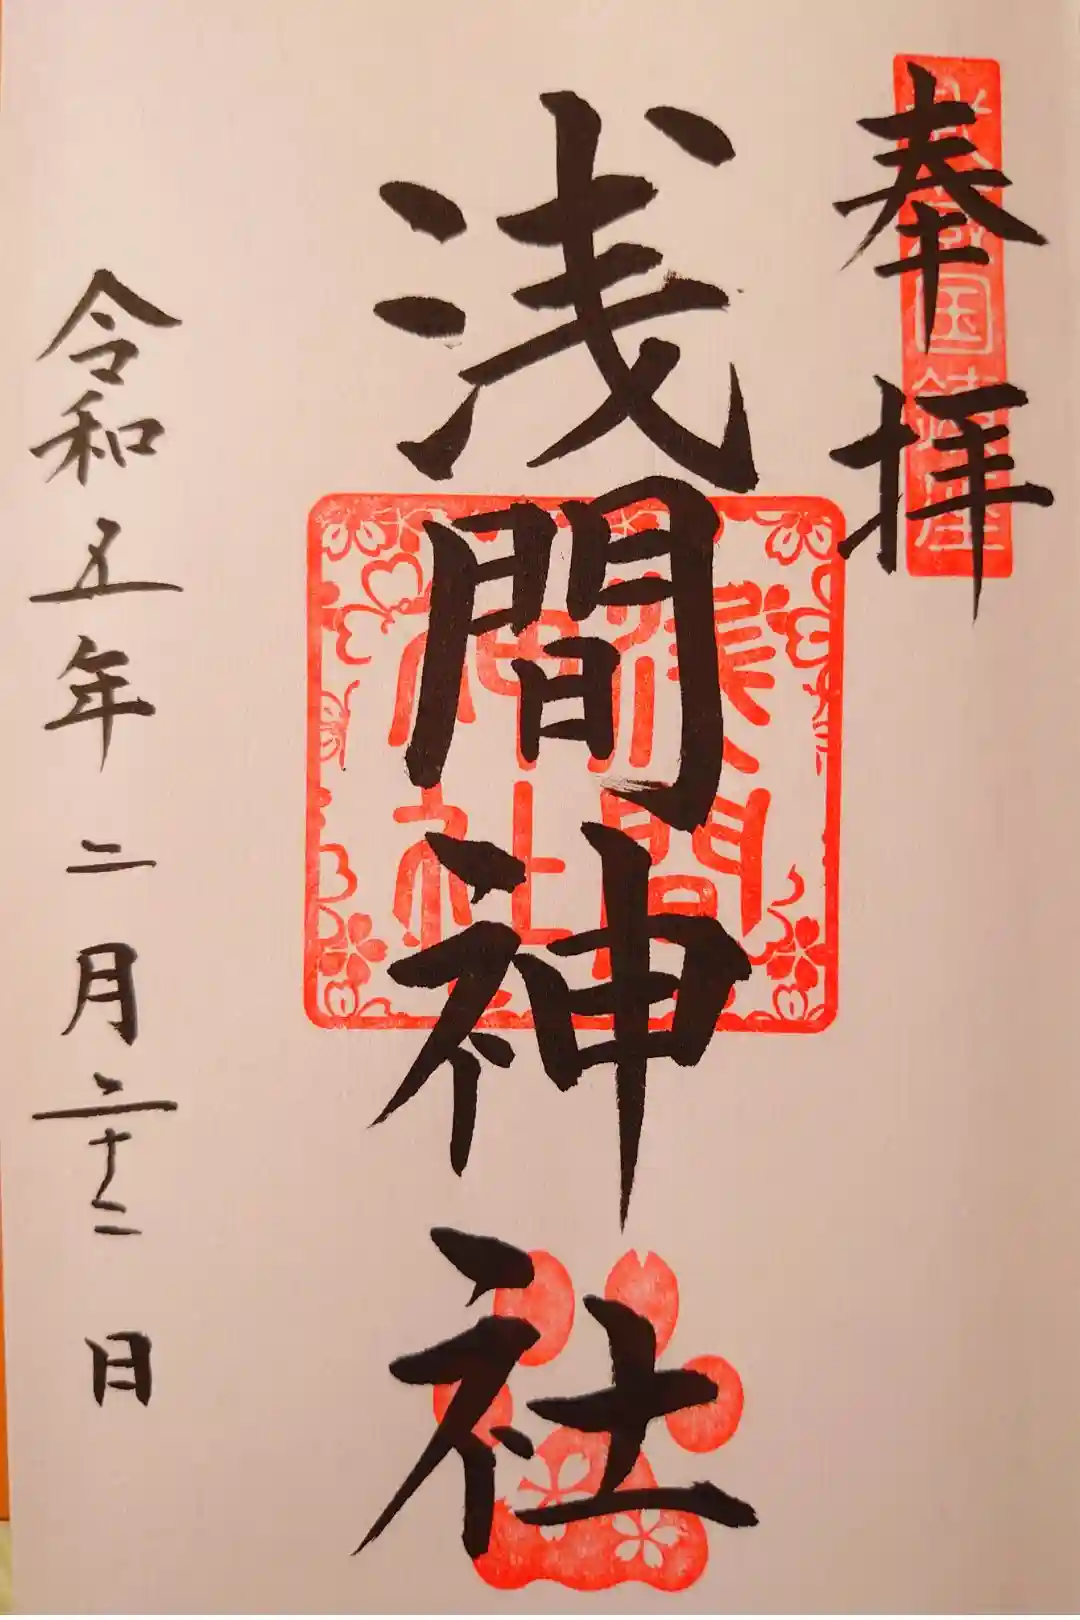 奉拝
武蔵国鎮座
浅間神社
浅間
神社
令和五年二月二十二日